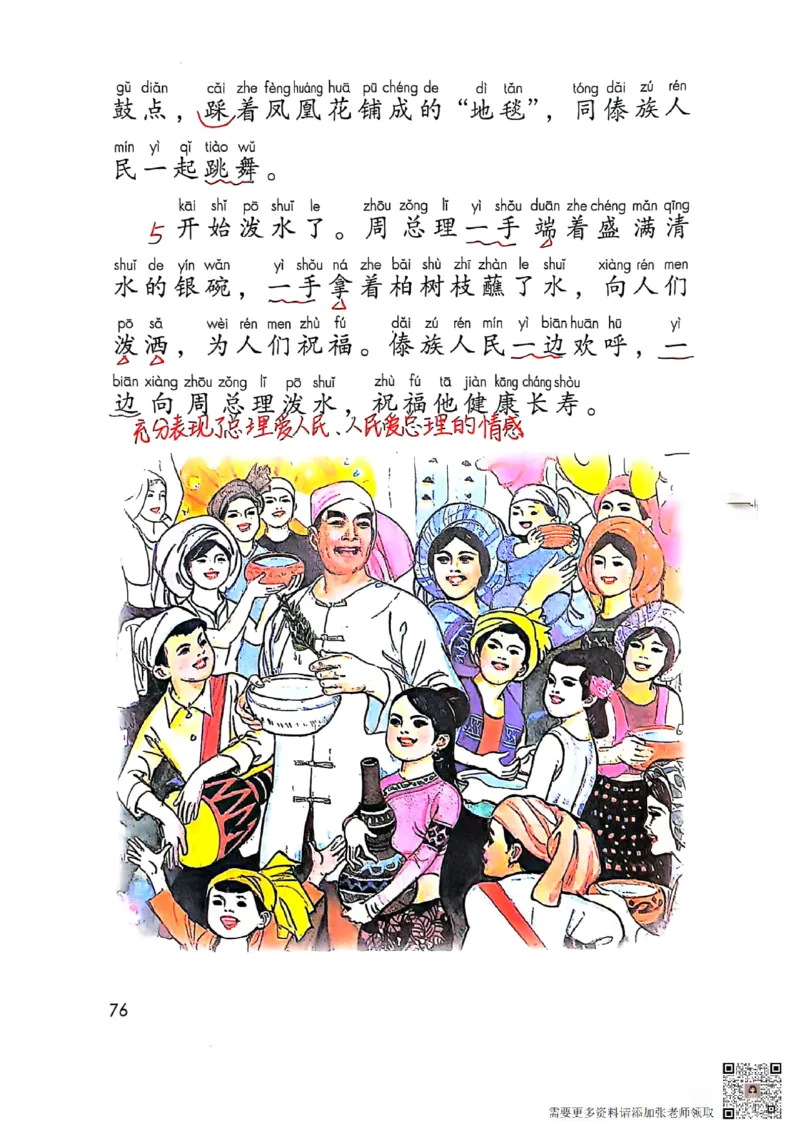 gǔ diǎn cǎi zhe fèng huáng huā pū chéng de dì tǎn tóng dǎi zú rén
鼓点，踩着凤凰花铺成的“地毯”，同傣族人
mín yì qǐ tiào wǔ
民一起跳舞。
kāi shǐ pō shuǐ le zhōu zǒng lǐ yì shǒu duān zhe chéng mǎn qīng
5 开始泼水了。周总理一手端着盛满清
shuǐ de yín wǎn yì shǒu ná zhe bǎi shù zhī zhàn le shuǐ xiàng rén men
水的银碗，一手拿着柏树枝蘸了水，向人们
pō sǎ wèi rén men zhù fú dǎi zú rén mín yì biān huān hū yì
泼洒，为人们祝福。傣族人民一边欢呼，一
biān xiàng zhōu zǒng lǐ pō shuǐ zhù fú tā jiàn kāng cháng shòu
边向周总理泼水，祝福他健康长寿。
充分表现了总理爱人民、人民爱总理的情感
76
需要更多资料请添加张老师领取